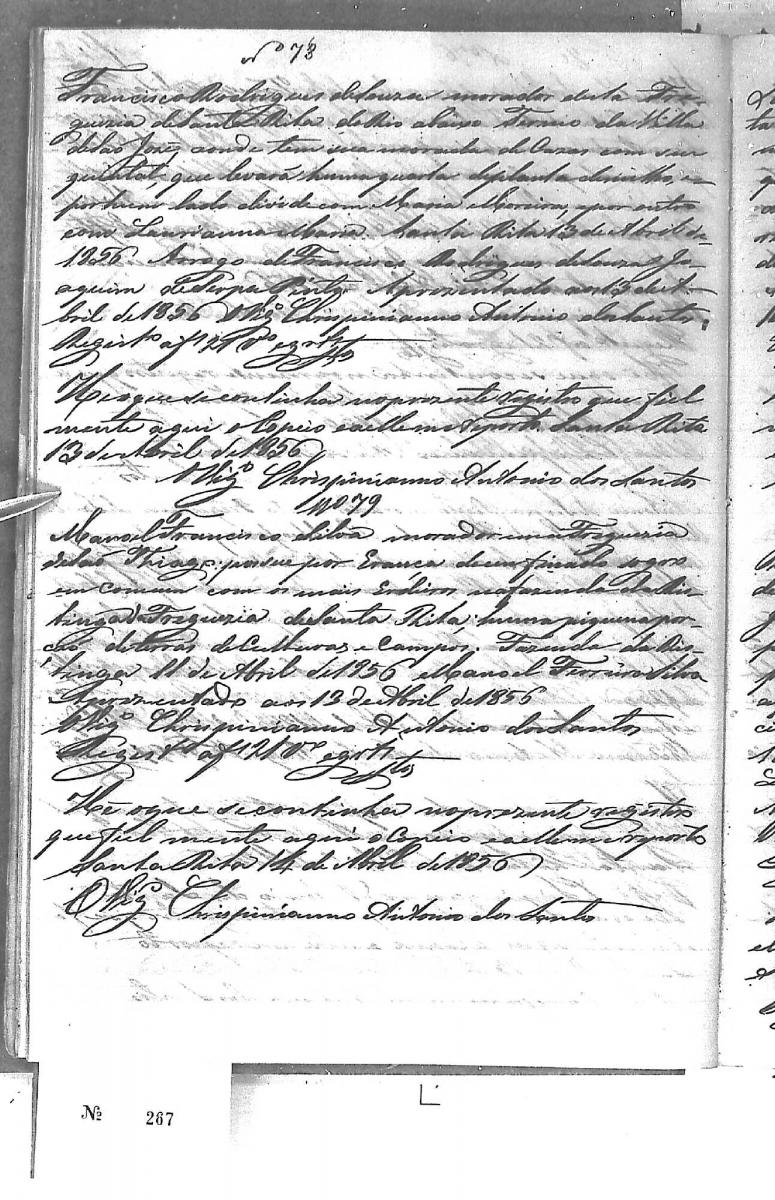 Nº 78
Francisco Rodrigues deSouza morador desta Fre-
guezia deSanta Rita do Rio abaixo Termo da Villa
deSão José, aonde tem sua morada de Cazas com seu
quintal, que levará huma quarta deplanta demilho, e
porhum lado divide com Maria Moreira, epor outro
com Laurianna Maria. Santa Rita 13 de Abril de
1856. Arogo deFrancisco Rodrigues deSouza, Jo-
aquim Pinto. Aprezentado aos 13 de A-
bril de 1856 O Vigº Chrispinianno Antonio dosSantos.
Registº af
He oque secontinha noprezente registro que fiel
mente aqui o Copeio eaellemereporto. Santa Rita
13 de Abril de 1856
O Vigº Chrispinianno Antonio dos Santos
Nº 79
Manoel Francisco Silva morador na Freguezia
deSão Thiago: possue por Erança deseu finado sogro
em comum com os mais Erdeiros nafazenda da Res-
tinga da Freguezia deSanta Rita, huma piquena por-
ção deterras deCulturas e Campos. Fazenda da Res-
tinga 11 de Abril de 1856 Manoel Ferreira Silva
Aprezentado aos 13 de Abril de 1856
O Vigº Chrispinianno Antonio dos Santos
Registº af
Hé oque secontinha noprezente registro
que fiel mente aqui o Copeio eaellemereporto
Santa Rita 14 de Abril de 1856
O Vigº Chrispinianno Antonio dos Santos
№ 267